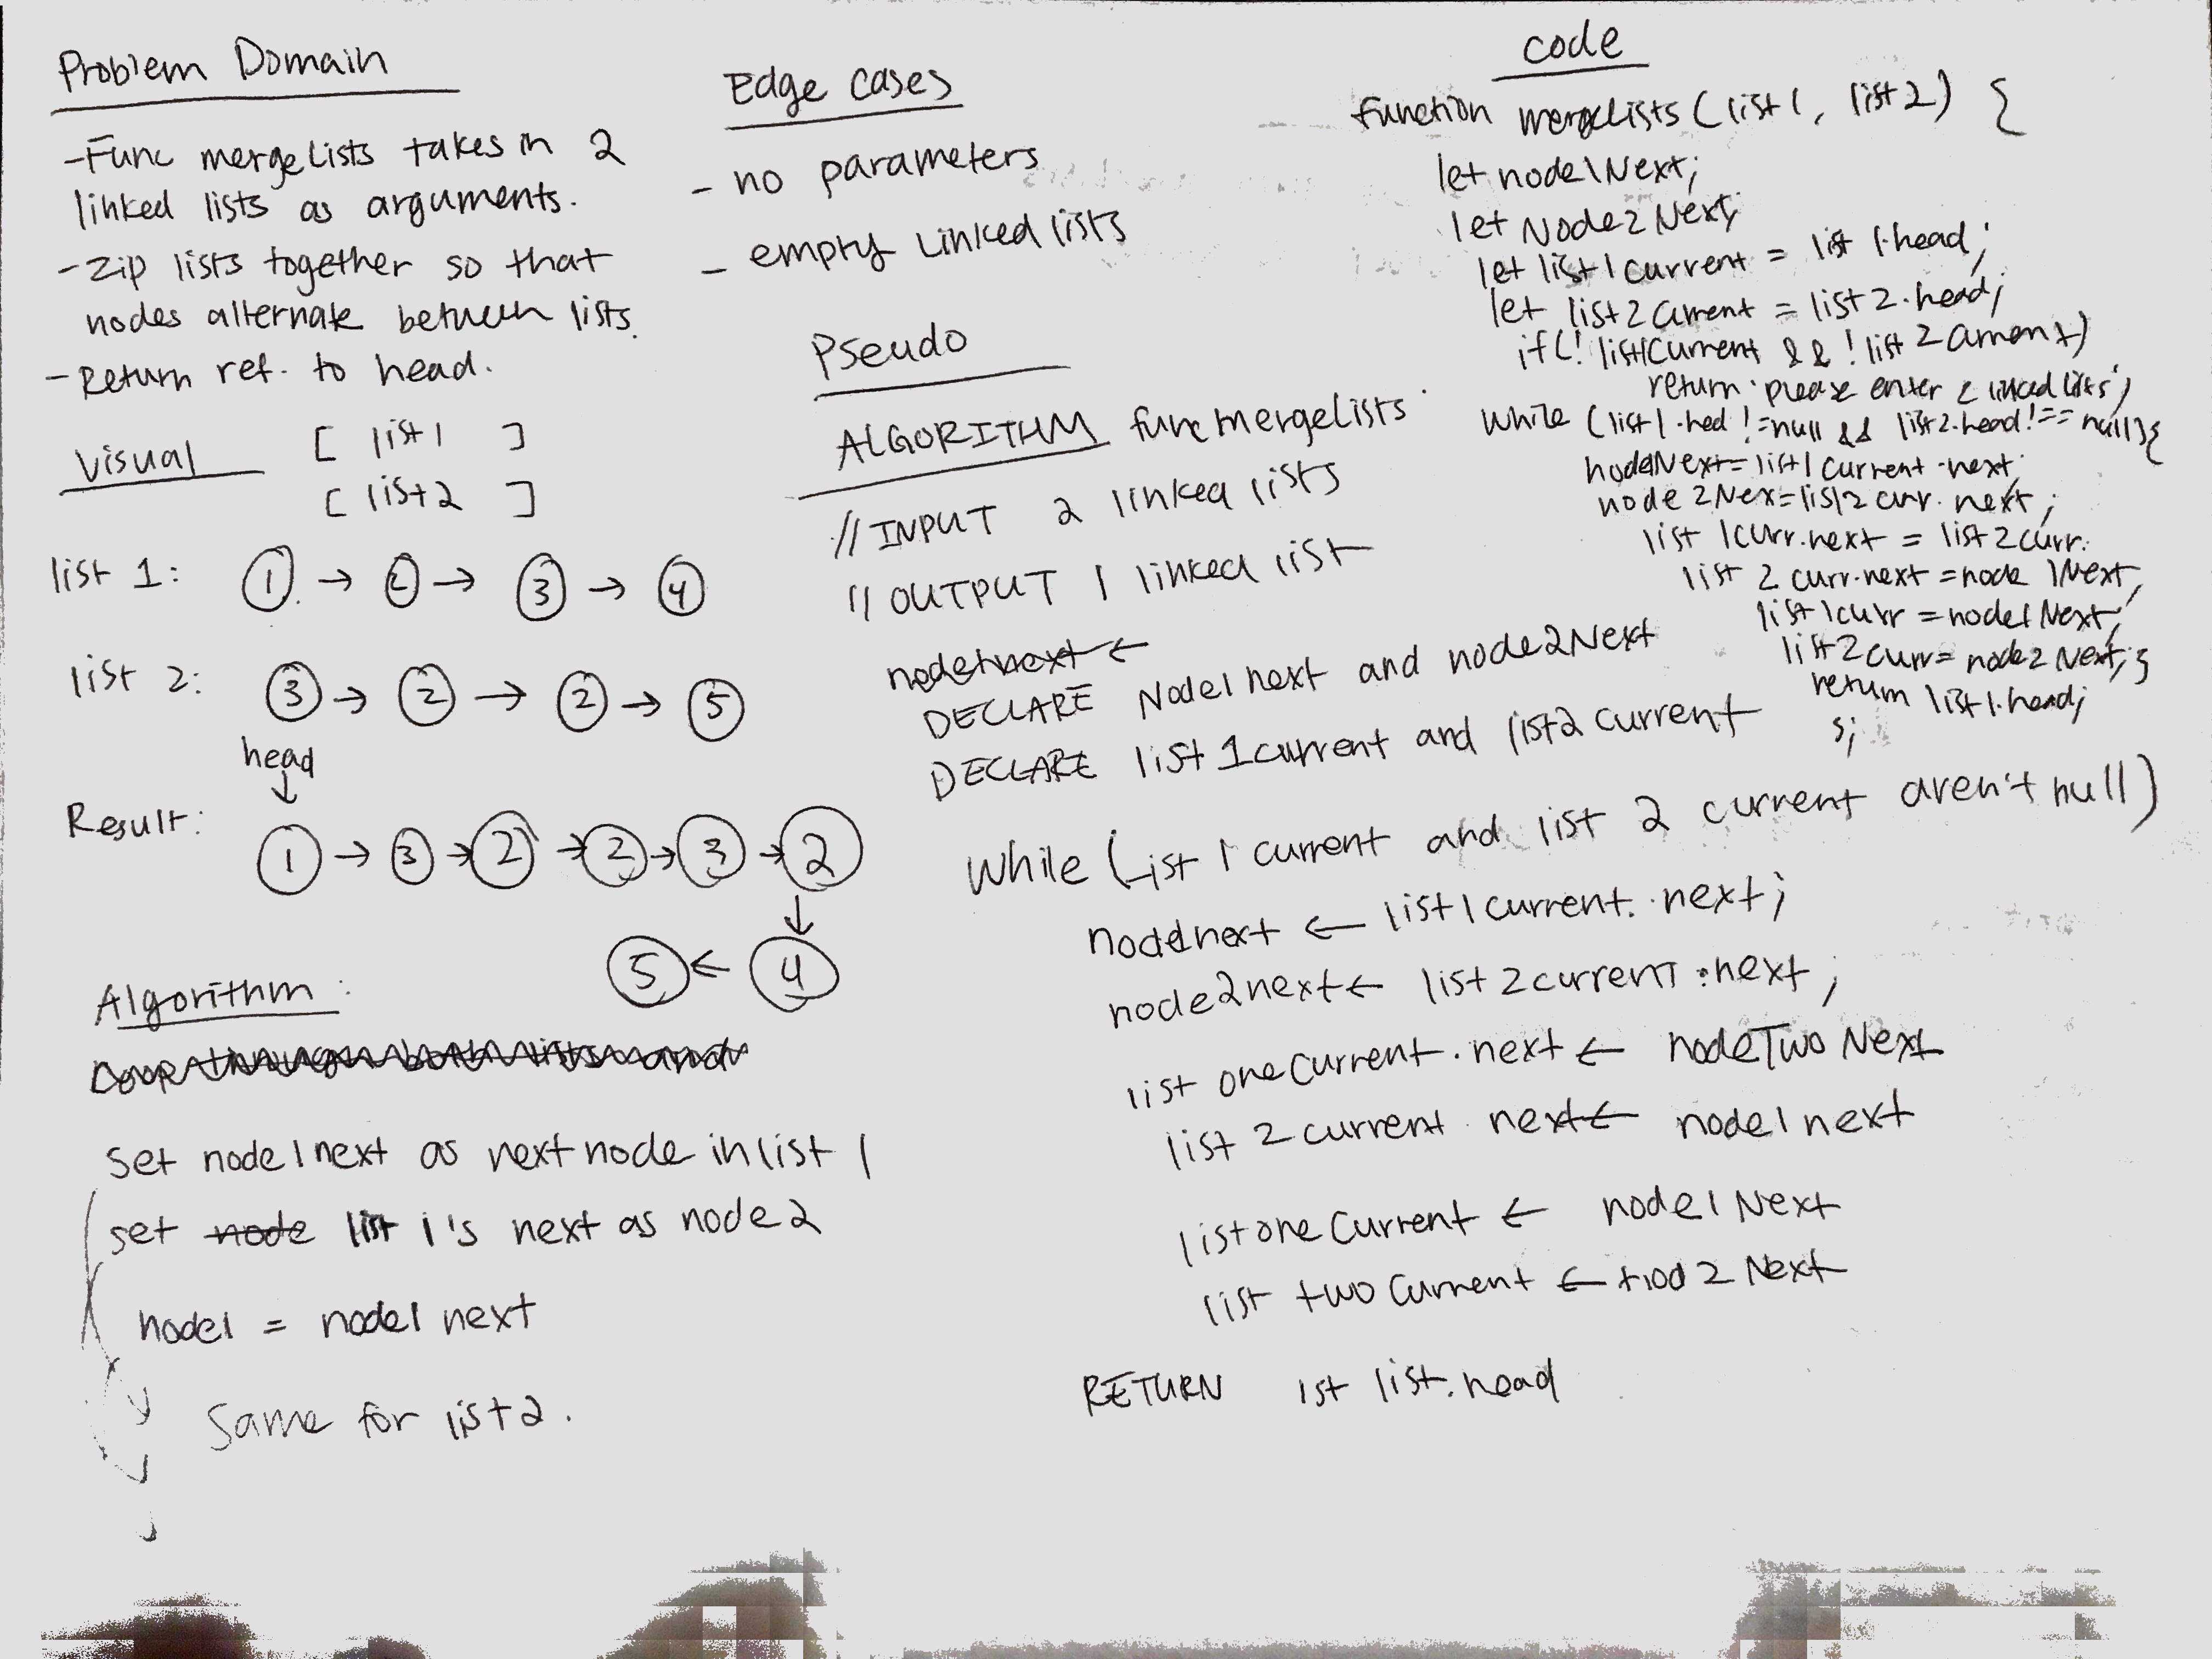 Problem Domain
-Func mergeLists takes in 2
linked lists as arguments.
-Zip lists together so that
nodes alternate between lists.
-Return ref. to head.
Visual
[ list1 ]
[ list2 ]
list 1: 1 → 2 → 3 → 4
list 2: 3 → 2 → 2 → 5
head
↓
Result: 1 → 3 → 2 → 2 → 3 → 2
↓
5 ← 4
Algorithm:
Loop through both lists and
set node1next as next node in list 1
set node list 1's next as node2
node1 = node1 next
Same for list2.
Edge cases
- no parameters
- empty linked lists
Pseudo
ALGORITHM func mergeLists
// INPUT 2 linked lists
// OUTPUT 1 linked list
node1next ←
DECLARE Node1next and node2Next
DECLARE list 1current and list2 current
While (List 1 current and list 2 current aren't null)
node1next ← list1current.next;
node2next ← list 2current.next;
list oneCurrent.next ← nodeTwo Next
list 2 current next ← node1 next
listoneCurrent ← node1 Next
list twoCurrent ← nod 2 Next
RETURN 1st list.head
code
function mergeLists (list1, list2) {
let node1Next;
let Node2 Next;
let list1current = list1.head;
let list2current = list2.head;
if(! list1Current && !list2current)
return 'please enter 2 linked lists';
while (list1.hed != null && list2.head !== null){
node1Next = list1current.next;
node 2Nex = list2 curr. next;
list 1curr.next = list2curr.
list 2 curr.next = node 1Next;
list1curr = node1Next;
list2curr = node2Next; }
return list1.head;
};